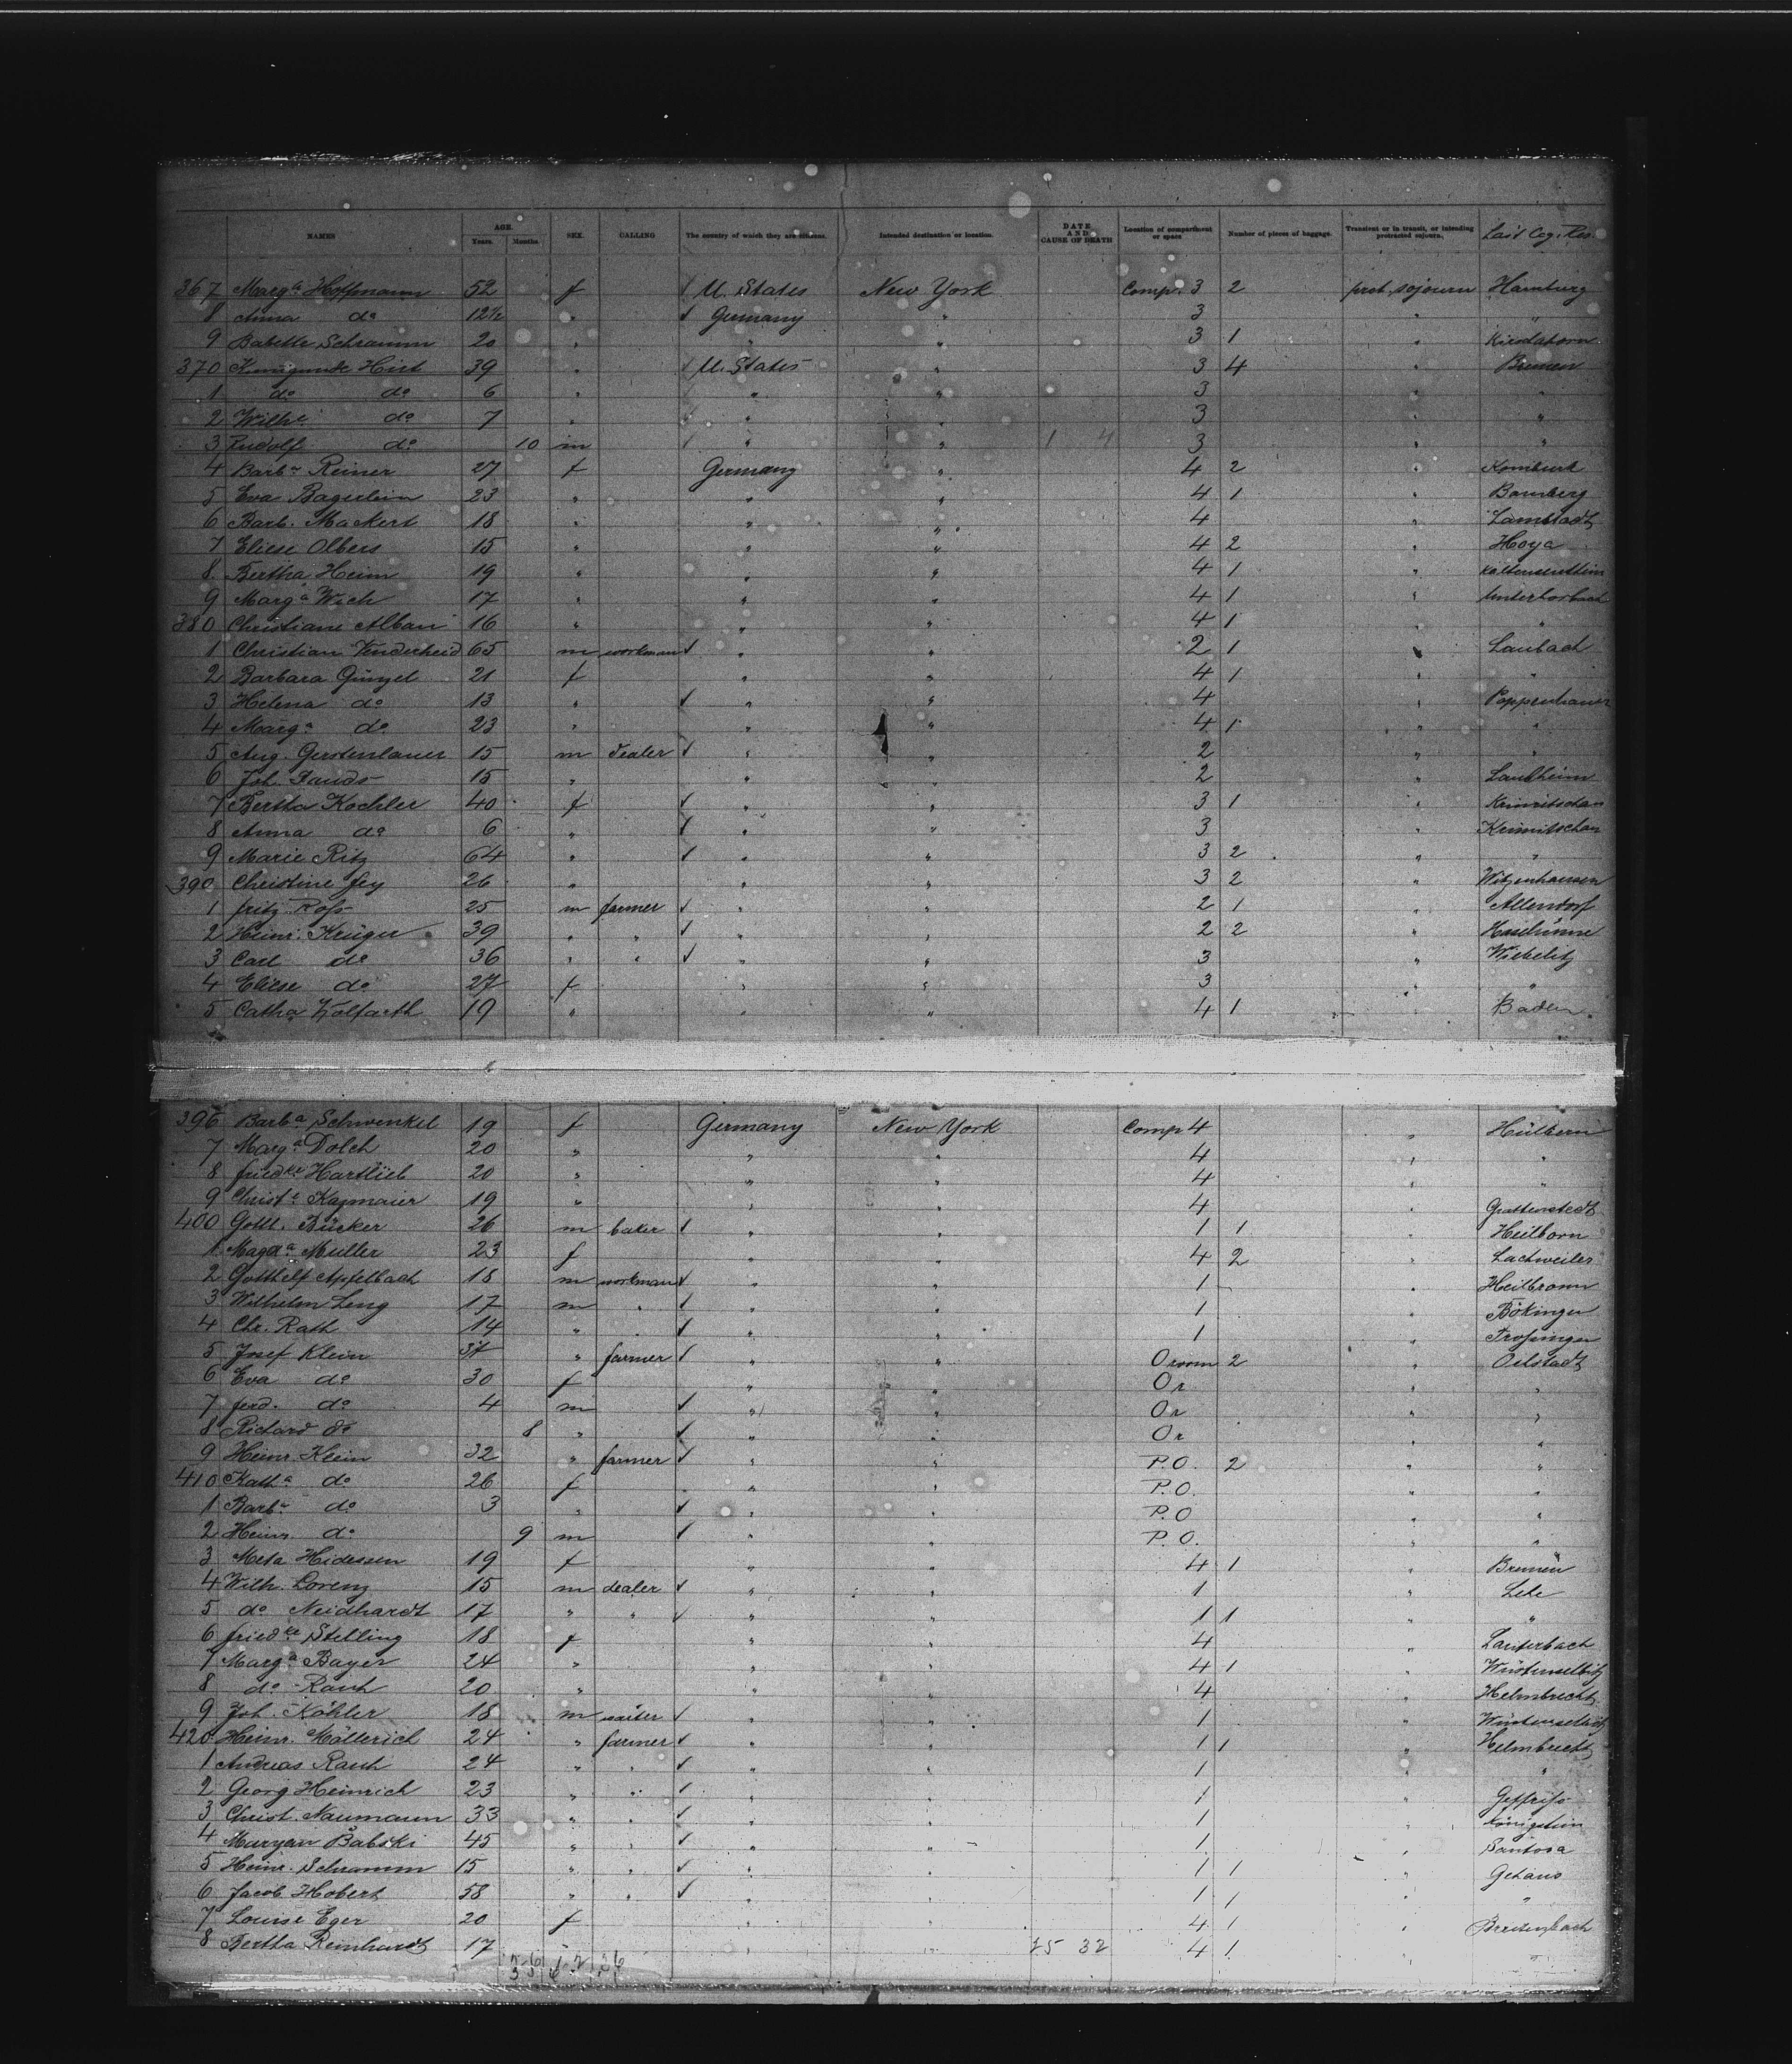 NAMES AGE. Years. Months. SEX. CALLING The country of which they are citizens. Intended destination or location. DATE AND CAUSE OF DEATH Location of compartment or space Number of pieces of baggage. Transient or in transit, or intending protracted sojourn. Last Leg. Res.
367 Marga Hoffmann 52 f ✓ U. States New York Comp. 3 2 prot. sojourn Hamburg
8 Anna do 12½ " ✓ Germany " 3 " "
9 Babette Schramm 20 " " " 3 1 "
370 Kunigunde Hirt 39 " ✓ U. States " 3 4 " Bremen
1 do do 6 " " " 3 " "
2 Wilhe do 7 " " " 3 " "
3 Rudolf do 10 m " " 1 4 3 " "
4 Barba Reiner 27 f Germany " 4 2 "
5 Eva Bagerlein 23 " " " 4 1 " Bamberg
6 Barb. Mackert 18 " " " 4 "
7 Eliese Olbers 15 " " " 4 2 " Hoya
8 Bertha Heim 19 " " " 4 1 "
9 Marga Wich 17 " " " 4 1 "
380 Christiane Alban 16 " " " 4 1 " "
1 Christian Vonderheid 65 m workman ✓ " " 2 1 " Laubach
2 Barbara Günzel 21 f " " 4 1 " "
3 Helena do 13 " ✓ " " 4 "
4 Marga do 23 " " " 4 1 " "
5 Aug. Gerstenlauer 15 m dealer ✓ " " 2 " "
6 Joh. 15 " " " 2 " Laubheim
7 Bertha Kochler 40 f ✓ " " 3 1 " Krimitschau
8 Anna do 6 " ✓ " " 3 " Krimitschau
9 Marie Ritz 64 " ✓ " " 3 2 " "
390 Christine Fey 26 " " " 3 2 " Witzenhausen
1 Fritz Ross 25 m farmer ✓ " " 2 1 " Allendorf
2 Heinr. Krüger 39 " " ✓ " " 2 2 " Haselünne
3 Carl do 36 " " ✓ " " 3 "
4 Eliese do 27 f " " 3 " "
5 Catha 19 " " " 4 1 Baden
396 Barba Schwenkel 19 f Germany New York Comp 4 " Hülbern
7 Marga Dolch 20 " " " 4 " "
8 Friedke Hartlieb 20 " " " 4 " "
9 Christe Kazmaier 19 " " " 4 "
400 Gottl. Bücker 26 m baker ✓ " " 1 1 " Heilborn
1 Magda Müller 23 f " " 4 2 " Lachweiler
2 Gotthelf Apfelbach 18 m workman ✓ " " 1 " Heilbronn
3 Wilhelm Leng 17 m " ✓ " " 1 " Bökingen
4 Chr. Rath 14 " " ✓ " " 1 " Trossingen
5 Josef Klein 37 " farmer ✓ " " O room 2 "
6 Eva do 30 f " " Or " "
7 Ferd. do 4 m ✓ " " Or " "
8 Richard do 8 " ✓ " " Or " "
9 Heinr. Klein 32 " farmer ✓ " " P.O. 2 " "
410 Katha do 26 f " " P.O. " "
1 Barba do 3 " ✓ " " P.O " "
2 Heinr. do 9 m ✓ " " P.O. " "
3 Meta Hidessen 19 f " " 4 1 " Bremen
4 Wilh. Lorenz 15 m dealer ✓ " " 1 " Lehe
5 do Neidhardt 17 " " ✓ " " 1 1 " "
6 Friedke Stelling 18 f " " 4 " Lauterbach
7 Marga Bayer 24 " " " 4 1 " Wüstenselbitz
8 do Rauh 20 " " " 4 " Helmbrecht
9 Joh. Köhler 18 m waiter ✓ " " 1 " Wüstenselbitz
420 Heinr. Möllerich 24 " farmer ✓ " " 1 1 " Helmbrecht
1 Andreas Rauh 24 " " ✓ " " 1 " "
2 Georg Heinrich 23 " " ✓ " " 1 "
3 Christ. Naumann 33 " " ✓ " " 1 " Königstein
4 Maryan Babski 45 " " ✓ " " 1 "
5 Heinr. Schramm 15 " " ✓ " " 1 1 " Gehaus
6 Jacob Hobert 58 " " ✓ " " 1 1 "
7 Louise Eger 20 f " " 4 1 " Breitenbach
8 Bertha Reinhardt 17 " " " 25 32 4 1 " "